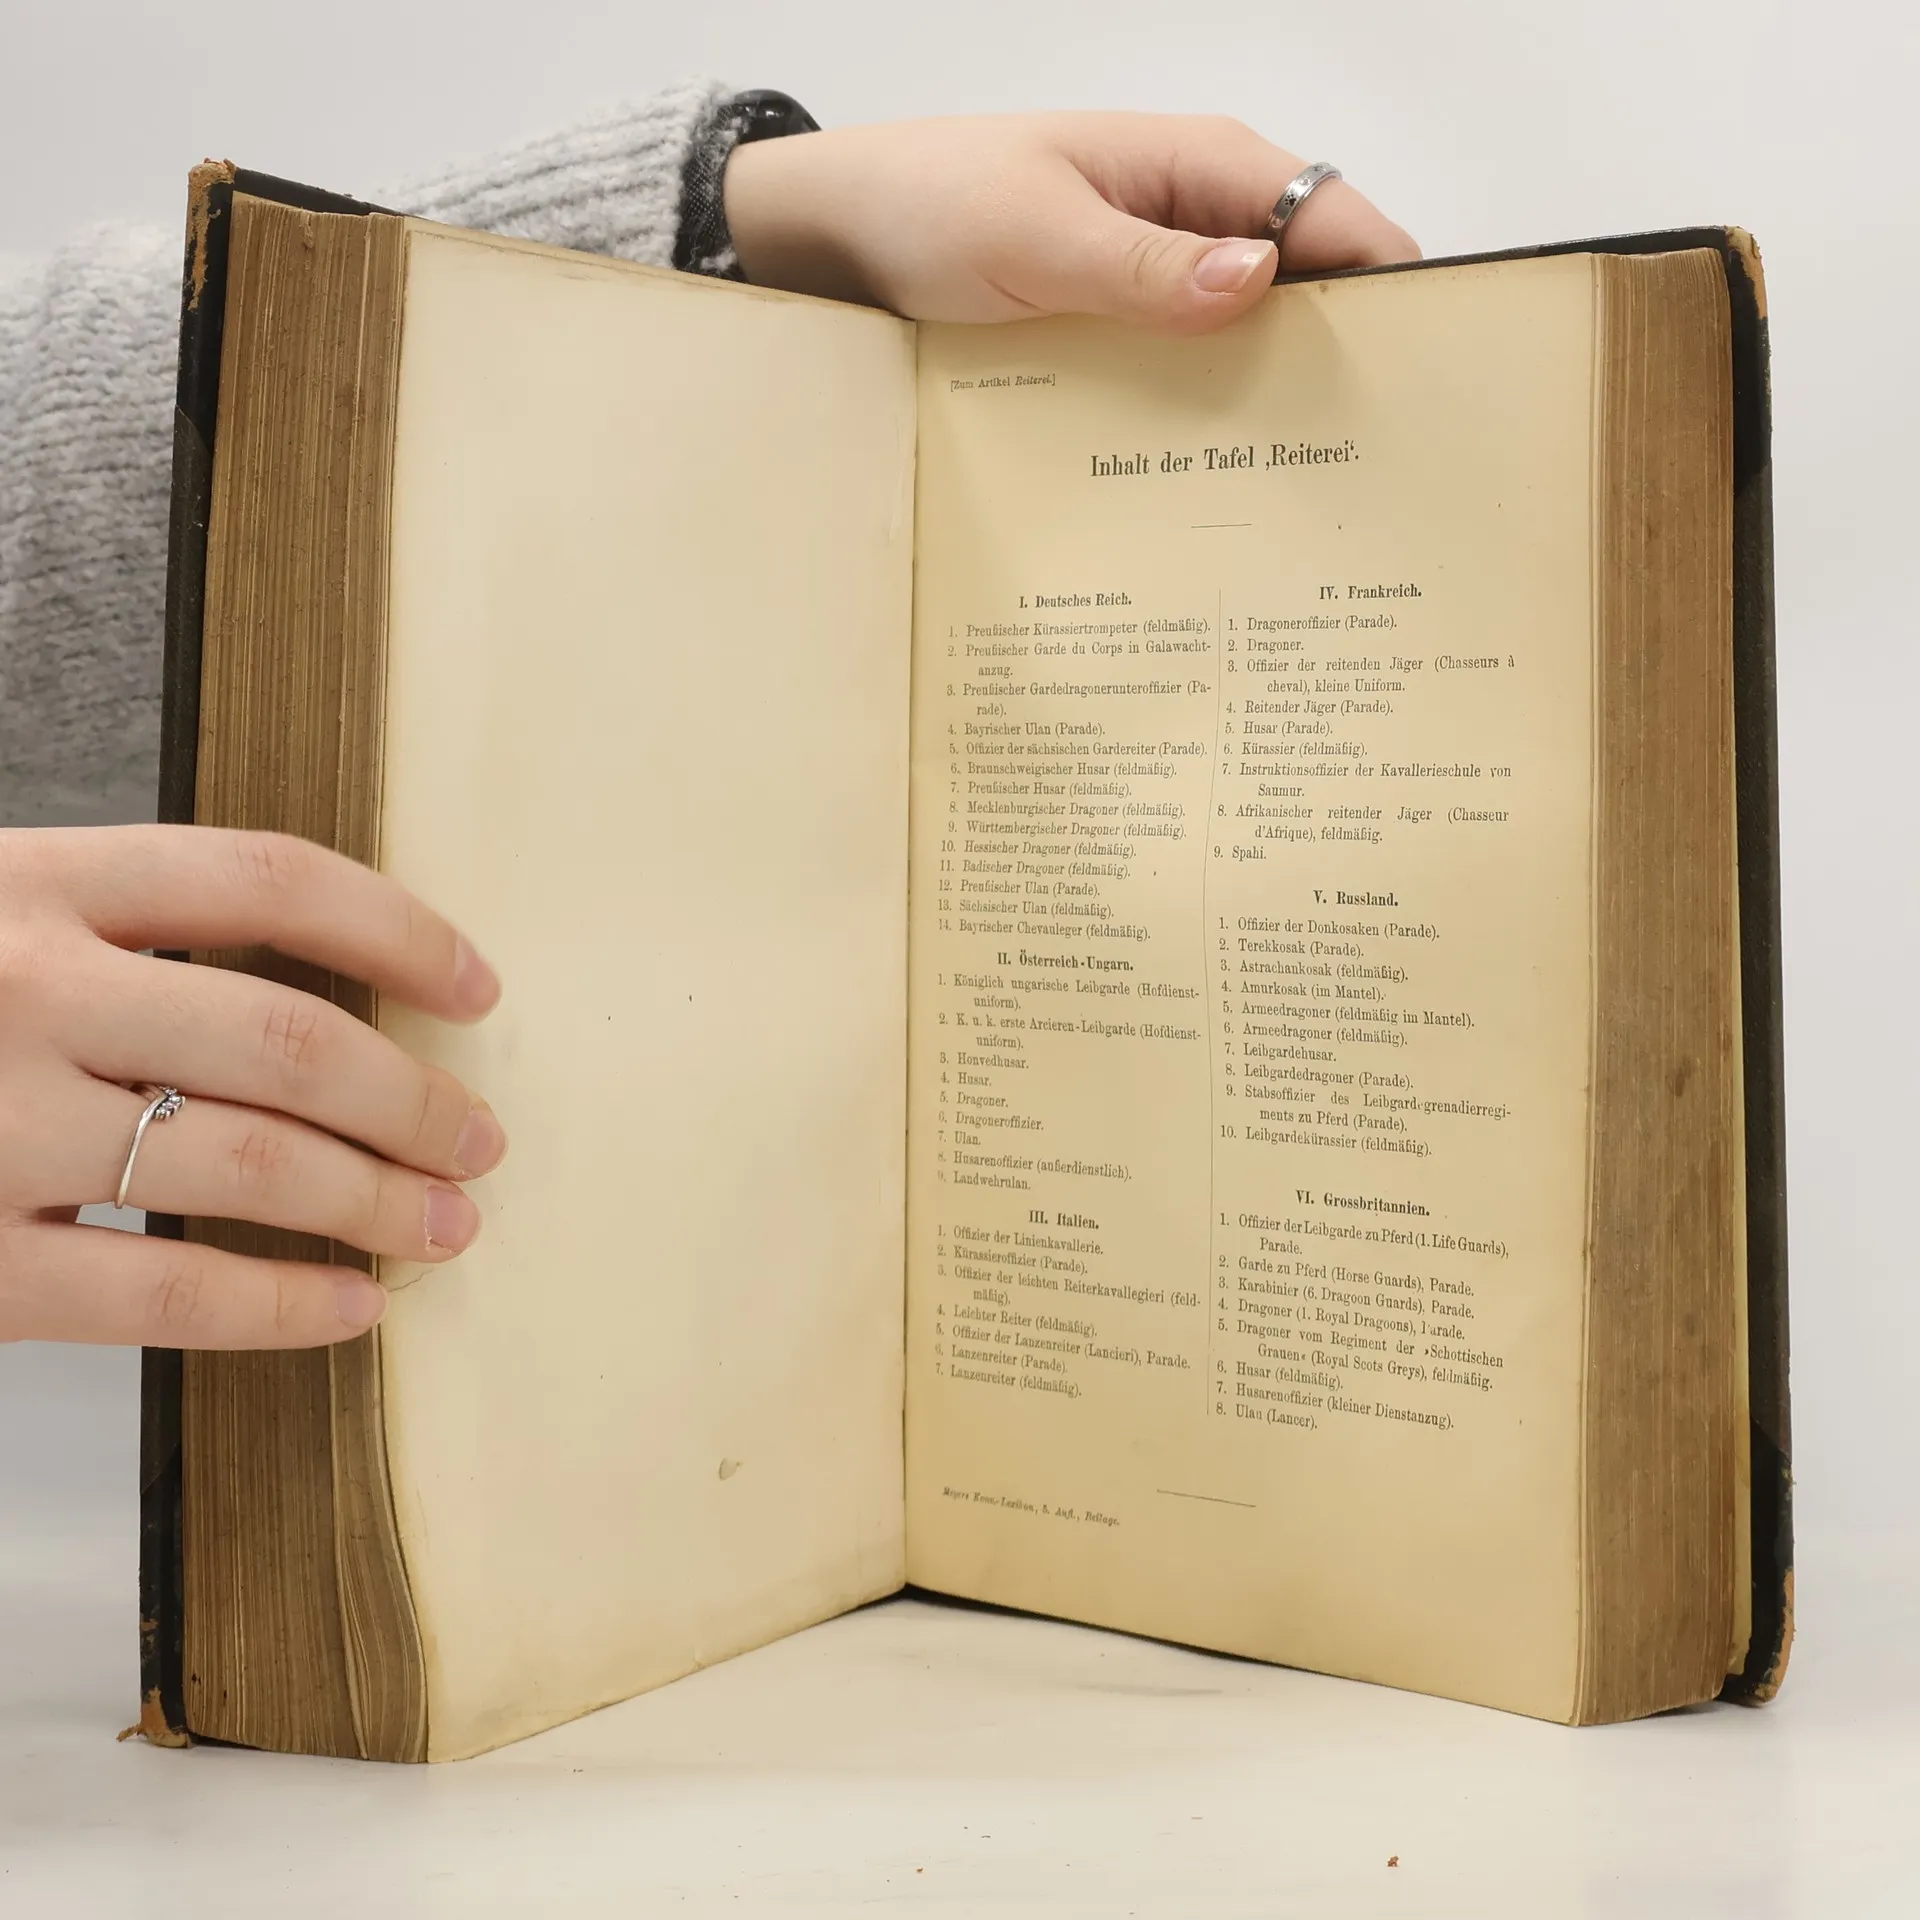 [Zum Artikel Reiterei.]
Inhalt der Tafel ‚Reiterei‘.
I. Deutsches Reich.
1. Preußischer Kürassiertrompeter (feldmäßig).
2. Preußischer Garde du Corps in Galawacht-
anzug.
3. Preußischer Gardedragonerunteroffizier (Pa-
rade).
4. Bayrischer Ulan (Parade).
5. Offizier der sächsischen Gardereiter (Parade).
6. Braunschweigischer Husar (feldmäßig).
7. Preußischer Husar (feldmäßig).
8. Mecklenburgischer Dragoner (feldmäßig).
9. Württembergischer Dragoner (feldmäßig).
10. Hessischer Dragoner (feldmäßig).
11. Badischer Dragoner (feldmäßig).
12. Preußischer Ulan (Parade).
13. Sächsischer Ulan (feldmäßig).
14. Bayrischer Chevauleger (feldmäßig).
II. Österreich-Ungarn.
1. Königlich ungarische Leibgarde (Hofdienst-
uniform).
2. K. u. k. erste Arcieren-Leibgarde (Hofdienst-
uniform).
3. Honvedhusar.
4. Husar.
5. Dragoner.
6. Dragoneroffizier.
7. Ulan.
8. Husarenoffizier (außerdienstlich).
9. Landwehrulan.
III. Italien.
1. Offizier der Linienkavallerie.
2. Kürassieroffizier (Parade).
3. Offizier der leichten Reiterkavallegieri (feld-
mäßig).
4. Leichter Reiter (feldmäßig).
5. Offizier der Lanzenreiter (Lancieri), Parade.
6. Lanzenreiter (Parade).
7. Lanzenreiter (feldmäßig).
IV. Frankreich.
1. Dragoneroffizier (Parade).
2. Dragoner.
3. Offizier der reitenden Jäger (Chasseurs à
cheval), kleine Uniform.
4. Reitender Jäger (Parade).
5. Husar (Parade).
6. Kürassier (feldmäßig).
7. Instruktionsoffizier der Kavallerieschule von
Saumur.
8. Afrikanischer reitender Jäger (Chasseur
d'Afrique), feldmäßig.
9. Spahi.
V. Russland.
1. Offizier der Donkosaken (Parade).
2. Terekkosak (Parade).
3. Astrachankosak (feldmäßig).
4. Amurkosak (im Mantel).
5. Armeedragoner (feldmäßig im Mantel).
6. Armeedragoner (feldmäßig).
7. Leibgardehusar.
8. Leibgardedragoner (Parade).
9. Stabsoffizier des Leibgard-grenadierregi-
ments zu Pferd (Parade).
10. Leibgardekürassier (feldmäßig).
VI. Grossbritannien.
1. Offizier der Leibgarde zu Pferd (1. Life Guards),
Parade.
2. Garde zu Pferd (Horse Guards), Parade.
3. Karabinier (6. Dragoon Guards), Parade.
4. Dragoner (1. Royal Dragoons), Parade.
5. Dragoner vom Regiment der »Schottischen
Grauen« (Royal Scots Greys), feldmäßig.
6. Husar (feldmäßig).
7. Husarenoffizier (kleiner Dienstanzug).
8. Ulan (Lancer).
Meyers Konv.-Lexikon, 5. Aufl., Beilage.